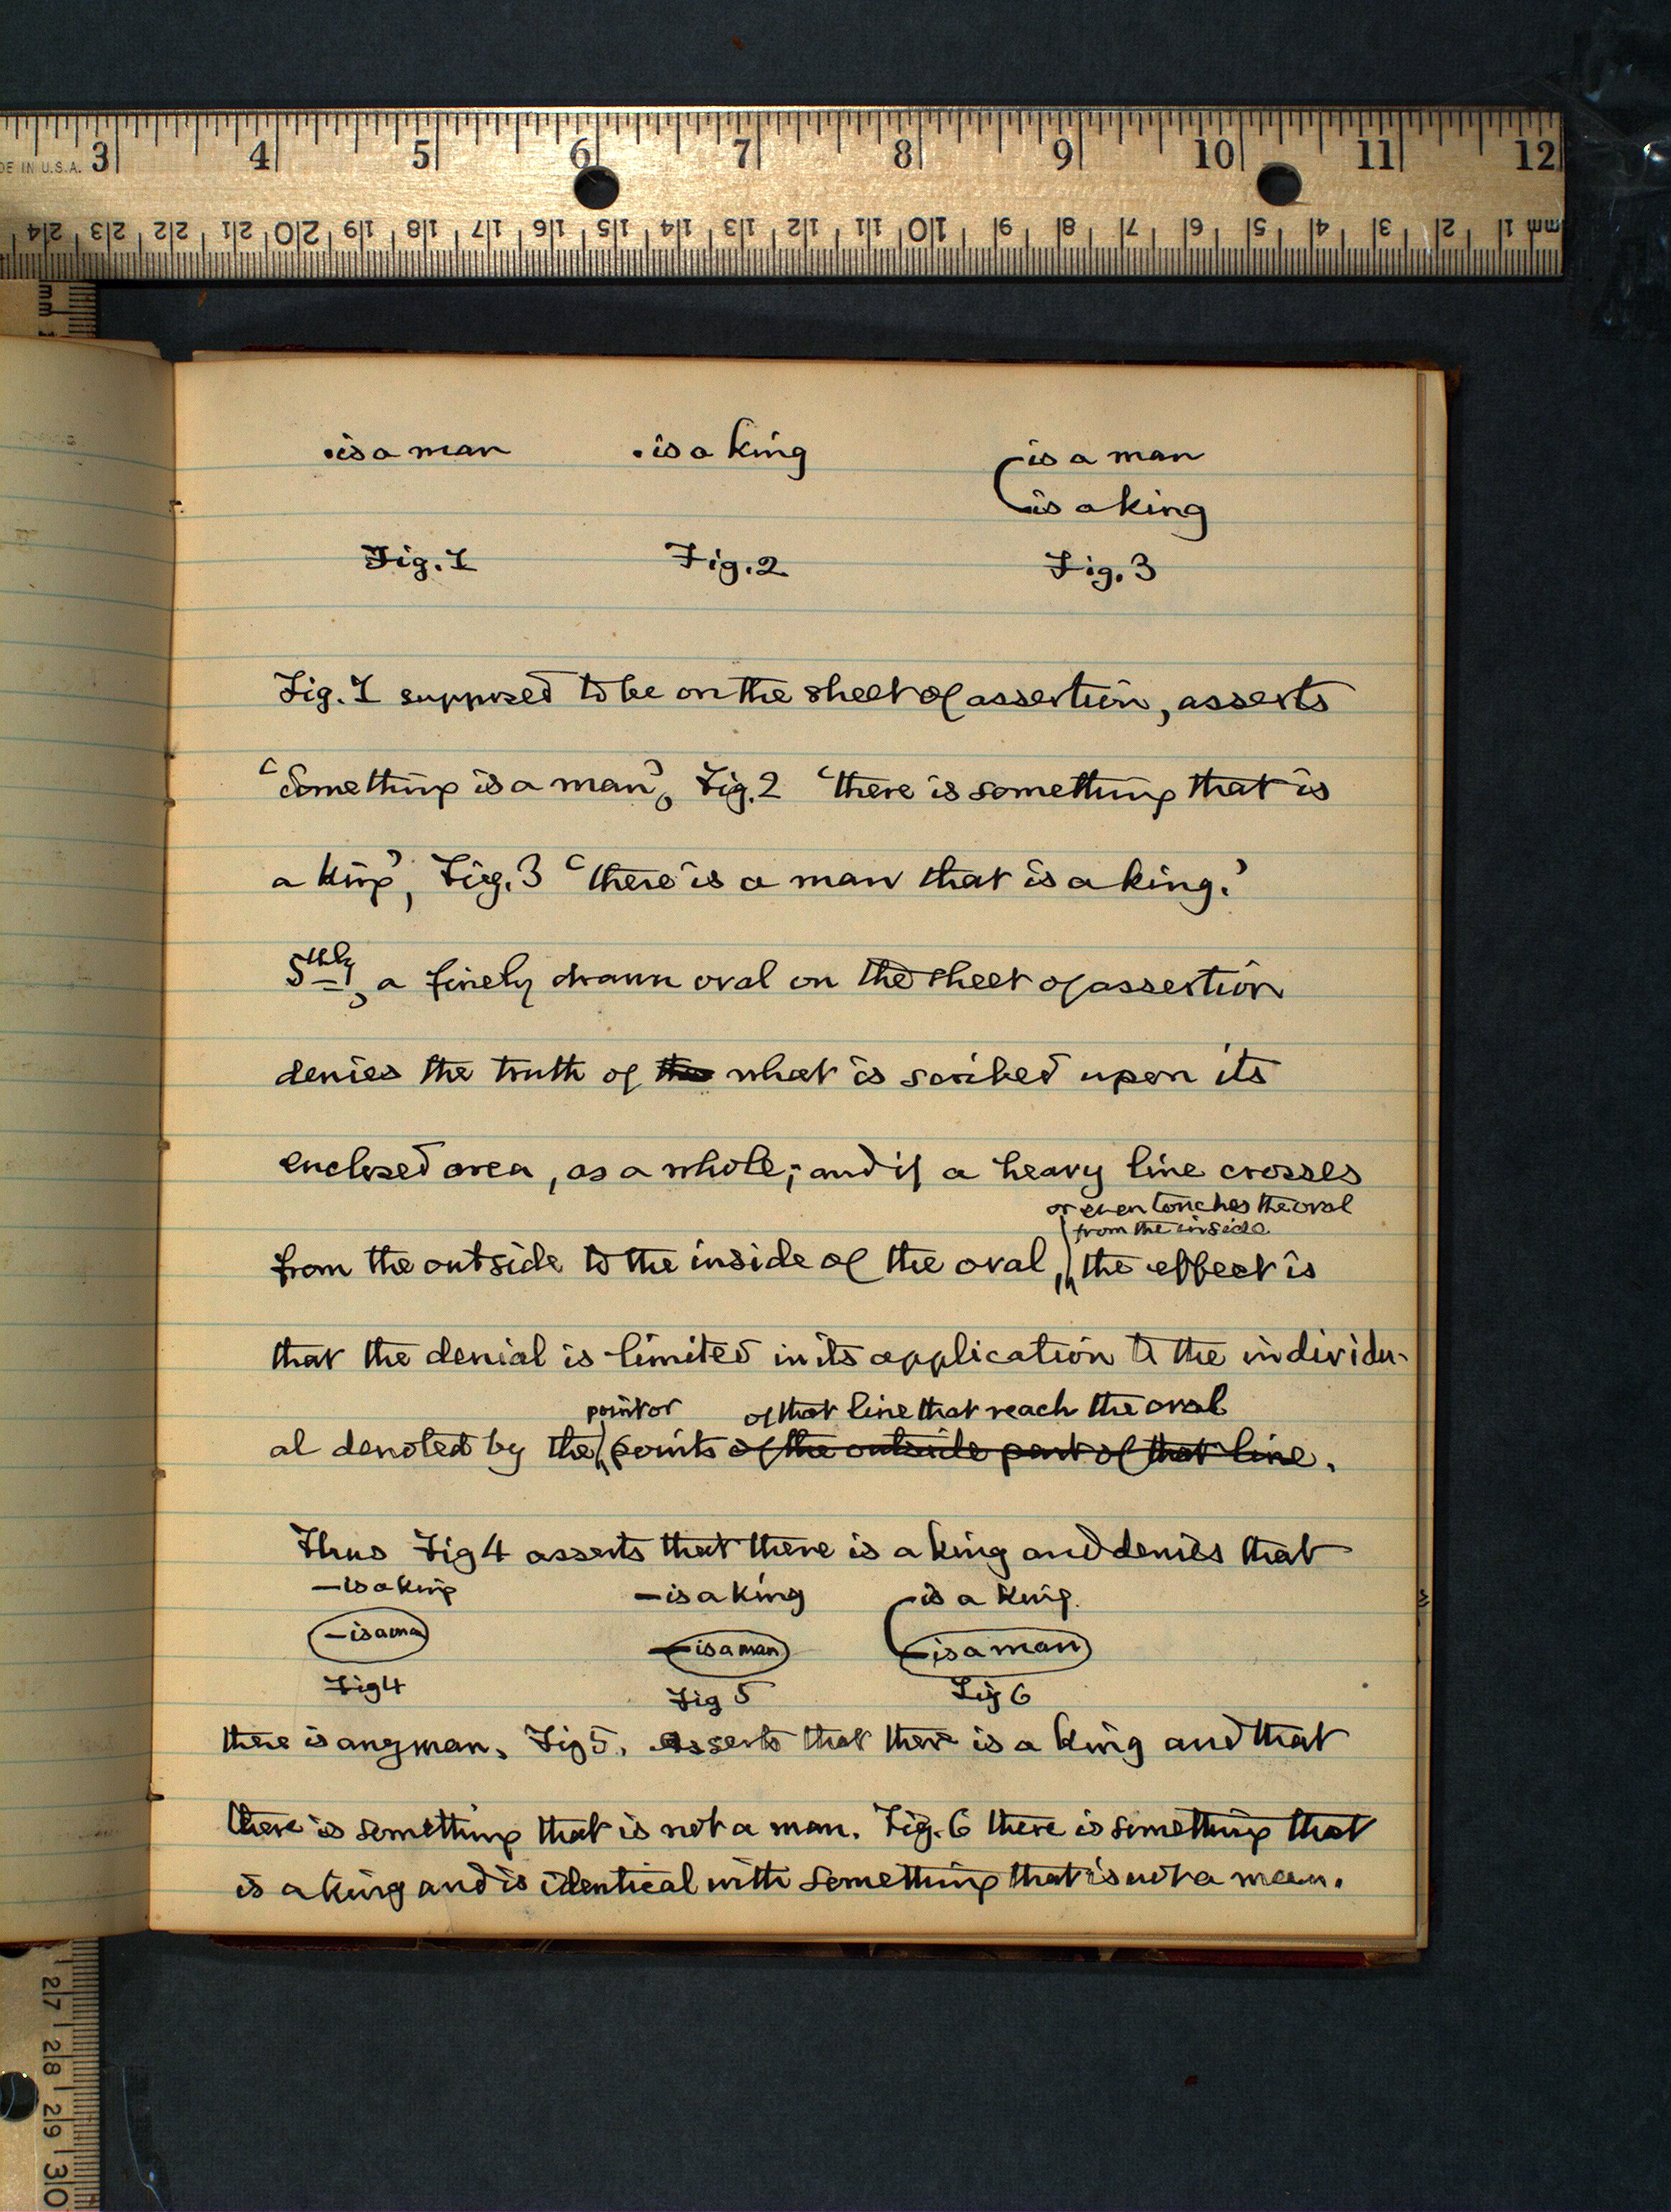 DE IN U.S.A. 3 4 5 6 7 8 9 10 11 12
24 23 22 21 20 19 18 17 16 15 14 13 12 11 10 9 8 7 6 5 4 3 2 1 mm
mm 1
.is a man .is a king is a man
is a king
Fig. 1 Fig. 2 Fig. 3
Fig. 1 supposed to be on the sheet of assertion, asserts
'Something is a man', Fig. 2 'there is something that is
a king', Fig. 3 'there is a man that is a king.'
5thly, a finely drawn oval on the sheet of assertion
denies the truth of the what is scribed upon its
enclosed area, as a whole; and if a heavy line crosses
or even touches the oval
from the inside
from the outside to the inside of the oval, the effect is
that the denial is limited in its application to the individu-
point or of that line that reach the oval
al denoted by the points of the outside part of that line.
Thus Fig 4 asserts that there is a king and denies that
—is a king —is a king is a king
—is a ma —is a man is a man
Fig 4 Fig 5 Fig 6
there is any man. Fig 5. Asserts that there is a king and that
there is something that is not a man. Fig. 6 there is something that
is a king and is identical with something that is not a man.
27 28 29 30